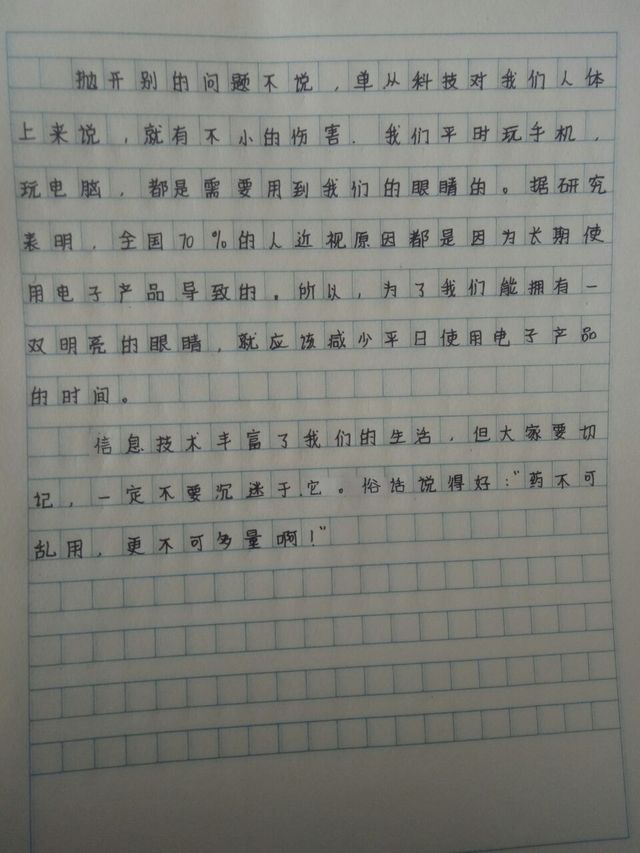 抛开别的问题不说，单从科技对我们人体
上来说，就有不小的伤害．我们平时玩手机，
玩电脑，都是需要用到我们的眼睛的。据研究
表明，全国70%的人近视原因都是因为长期使
用电子产品导致的。所以，为了我们能拥有一
双明亮的眼睛，就应该减少平日使用电子产品
的时间。
信息技术丰富了我们的生活，但大家要切
记，一定不要沉迷于它。俗话说得好："药不可
乱用，更不可多量啊！"